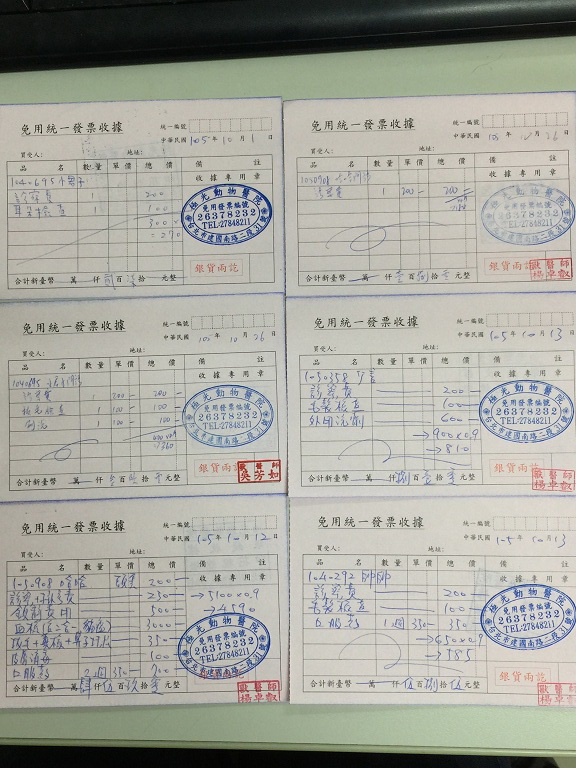 免用統一發票收據
統一編號
中華民國 105年10月1日
買受人: 地址:
品名 數量 單價 總價 備註
收據專用章
104-695小栗子
診察費 1 200
耳鏡檢查 100
300
270
極光動物醫院
免用發票編號
26378232
TEL:27848211
台北市建國南路二段31號
銀貨兩訖
合計新臺幣 萬 仟 貳 百 柒 拾 元整
免用統一發票收據
統一編號
中華民國 105年10月26日
買受人: 地址:
品名 數量 單價 總價 備註
收據專用章
1 200 200
極光動物醫院
免用發票編號
26378232
TEL:27848211
台北市建國南路二段31號
銀貨兩訖
獸醫師
楊卓叡
合計新臺幣 萬 仟 壹 百 捌 拾 元整
免用統一發票收據
統一編號
中華民國 105年10月26日
買受人: 地址:
品名 數量 單價 總價 備註
收據專用章
診察費 1 200 200
1 100 100
1 100 100
400x0.9
360
極光動物醫院
免用發票編號
26378232
TEL:27848211
台北市建國南路二段31號
銀貨兩訖
獸醫師
吳芳如
合計新臺幣 萬 仟 百 拾 元整
免用統一發票收據
統一編號
中華民國 105年10月13日
買受人: 地址:
品名 數量 單價 總價 備註
收據專用章
診察費 200
毛髮檢查 100
外用洗劑 600
→900x0.9
→810
極光動物醫院
免用發票編號
26378232
TEL:27848211
台北市建國南路二段31號
銀貨兩訖
獸醫師
楊卓叡
合計新臺幣 萬 仟 捌 百 壹 拾 元整
免用統一發票收據
統一編號
中華民國 105年10月12日
買受人: 地址:
品名 數量 單價 總價 備註
收據專用章
105-908哈哈 200
230 →5100x0.9
500 →4590
3000
350
100
口服藥 2週 350 700
極光動物醫院
免用發票編號
26378232
TEL:27848211
台北市建國南路二段31號
獸醫師
楊卓叡
合計新臺幣 萬 肆 仟 伍 百 玖 拾 元整
免用統一發票收據
統一編號
中華民國 105年10月13日
買受人: 地址:
品名 數量 單價 總價 備註
收據專用章
104-292帥帥
診察費 200
毛髮檢查 100
口服藥 1週 350 350
→650x0.9
→585
極光動物醫院
免用發票編號
26378232
TEL:27848211
台北市建國南路二段31號
銀貨兩訖
獸醫師
楊卓叡
合計新臺幣 萬 仟 伍 百 捌 拾 伍 元整